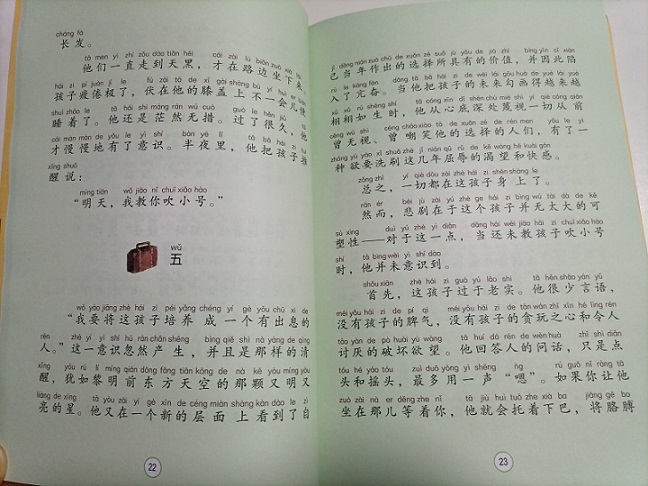 cháng fà
长发。
tā men yì zhí zǒu dào tiān hēi cái zài lù biān zuò xià lái
他们一直走到天黑，才在路边坐下来。
hái zi pí juàn jí le fú zài tā de xī gài shàng bù yí huì er biàn
孩子疲倦极了，伏在他的膝盖上不一会儿便
shuì zháo le tā hái shi máng rán wú cuò guò le hěn jiǔ
睡着了。他还是茫然无措。过了很久，
cái màn màn de yǒu le yì shí bàn yè lǐ tā bǎ hái zi tuī
才慢慢地有了意识。半夜里，他把孩子推
xǐng shuō
醒说：
míng tiān wǒ jiāo nǐ chuī xiǎo hào
“明天，我教你吹小号。”
wǔ
五
wǒ yào jiāng zhè hái zi péi yǎng chéng yí gè yǒu chū xi de
“我要将这孩子培养 成 一个有出息的
rén zhè yí yì shi hū rán chǎn shēng bìng qiě shì nà yàng de qīng
人。”这一意识忽然产 生，并且是那样的清
xǐng yóu rú lí míng qián dōng fāng tiān kōng de nà kē yòu míng yòu
醒，犹如黎明前东方天空的那颗又明又
liàng de xīng tā yòu zài yí gè xīn de céng miàn shàng kàn dào le zì
亮的星。他又在一个新的层面 上看到了自
22
jǐ dāng nián zuò chū de xuǎn zé suǒ jù yǒu de jià zhí bìng yīn cǐ xiàn
己当年作出的选择所具有的价值，并因此陷
rù le kàng fèn dāng tā bǎ hái zi de wèi lái gōu huà de yuè lái yuè
入了亢奋。当他把孩子的未来勾画得越来越
xǔ xǔ rú shēng shí tā cóng xīn dǐ shēn chù miè shì yí qiè cóng qián
栩栩如生时，他从心底深处蔑视一切从前
céng wú shì céng cháo xiào tā de xuǎn zé de rén men yǒu le yì
曾无视、曾嘲笑他的选择的人们，有了一
zhǒng yù yào xǐ shuā zhè jǐ nián qū rǔ de kě wàng hé kuài gǎn
种欲要洗刷这几年屈辱的渴望和快感。
zǒng zhī yí qiè dōu zài zhè hái zi shēn shàng le
总之，一切都在这孩子身 上了。
rán ér bēi jù zài yú zhè ge hái zi bìng wú tài dà de kě
然而，悲剧在于这个孩子并无太大的可
sù xìng duì yú zhè yì diǎn dāng hái wèi jiāo hái zi chuī xiǎo hào
塑性——对于这一点，当还未教孩子吹小号
shí tā bìng wèi yì shí dào
时，他并未意识到。
shǒu xiān zhè hái zi guò yú lǎo shi tā hěn shǎo yán yǔ
首先，这孩子过于老实。他很少言语，
méi yǒu hái zi de pí qi méi yǒu hái zi de tān wán zhī xīn hé lìng rén
没有孩子的脾气，没有孩子的贪玩之心和令人
tǎo yàn de pò huài yù wàng tā huí dá rén de wèn huà zhǐ shì diǎn
讨厌的破坏欲望。他回答人的问话，只是点
tóu hé yáo tóu zuì duō yòng yì shēng ng rú guǒ nǐ ràng tā
头和摇头，最多用一声“嗯”。如果你让他
zuò zài nà er děng zhe nǐ tā jiù huì tuō zhe xià ba jiāng gē bo
坐在那儿等着你，他就会托着下巴，将胳膊
23